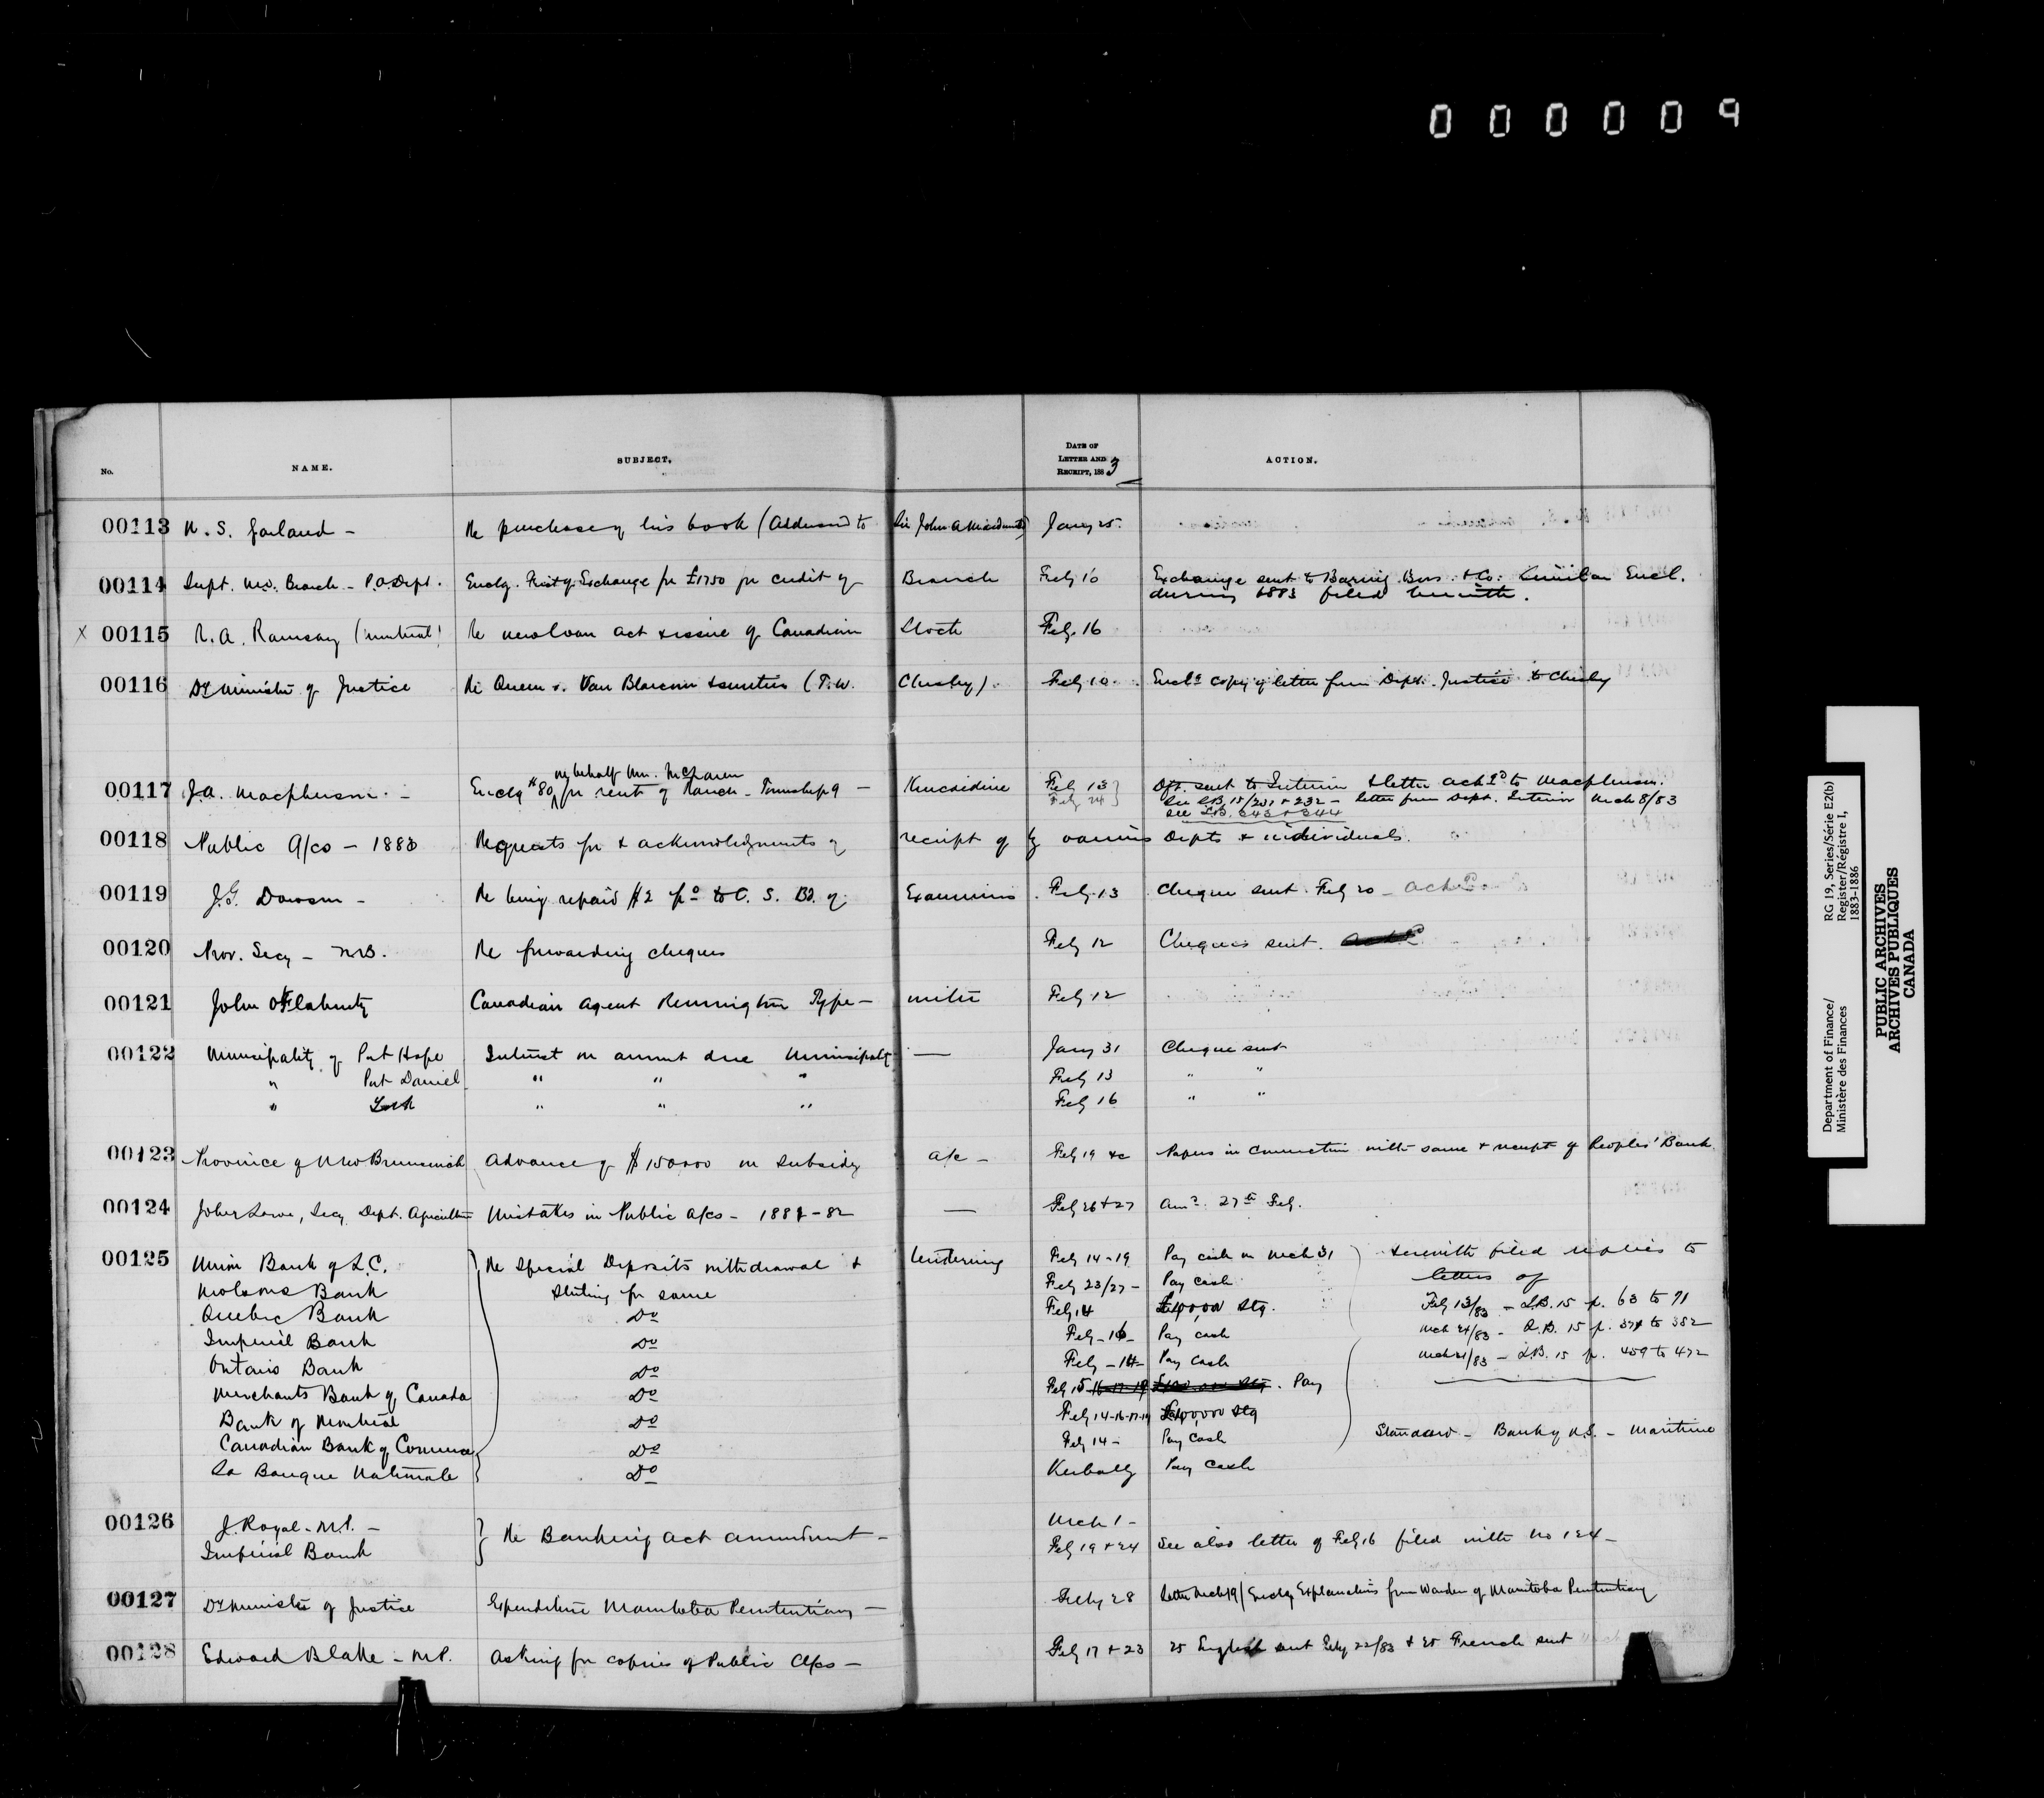 000009
No. NAME. SUBJECT. DATE OF LETTER AND RECEIPT, 1883 ACTION.
00113 N. S. Garland - Re purchase of his book (Addressed to Sir John A Macdonald) Jany 25.
00114 Supt. M.O. Branch - P.O. Dept. Enclg. First of Exchange for £1750 for credit of Branch Feby 10 Exchange sent to Baring Bros. & Co. Similar Encl.
during 1883 filed herewith.
X 00115 R. A. Ramsay (Montreal) Re new loan act & issue of Canadian Stock Feby. 16
00116 Dy Minister of Justice Re Queen v. Van Blarcom & sureties (T. W. Chisley). Feby 10. Encl. copy of letter from Dept. Justice to Chisley
on behalf Wm. McLaren
00117 J. A. Macpherson - Enclg $80 for rent of Ranch - Township 9 - Kincardine Feby 13 Dft. sent to Interior & letter ackgd to Macpherson.
Feby 24 See L.B. 15/231 & 232 - letter from Dept. Interior Mch 8/83
See L.B. 343 & 344
00118 Public A/cs - 1883 Requests for & acknowledgments of receipt of by various Depts & individuals.
00119 J. G. Dawson - Re being repaid $2 pd to C. S. Bd. of Examiners Feby. 13 Cheque sent. Feby 20 - Ackd
00120 Prov. Secy - N.B. Re forwarding cheques Feby 12 Cheques sent.
00121 John O'Flaherty Canadian Agent Remington Type - writer Feby 12
00122 Municipality of Port Hope Interest on amount due Municipality — Jany 31 Cheque sent
" Port Daniel " " " Feby 13 " "
" York " " " Feby 16 " "
00123 Province of New Brunswick Advance of $150000 on subsidy a/c - Feby 19 &c Papers in connection with same & receipt of Peoples' Bank
00124 John Lowe, Secy Dept. Agriculture Mistakes in Public A/cs - 1881-82 — Feby 26 & 27 Ansd. 27th Feby.
00125 Union Bank of L.C. Re Special Deposits withdrawal & tendering Feby 14-19 Pay cash on Mch 31 Herewith filed replies to
Molsons Bank Sterling for same Feby 23/27 - Pay cash letters of
Quebec Bank Do Feby 14 £10,000 Stg. Feby 13/83 - L.B. 15 p. 63 to 71
Imperial Bank Do Feby - 16 - Pay cash Mch 24/83 - L.B. 15 p. 374 to 382
Ontario Bank Do Feby - 14 - Pay cash Mch 31/83 - L.B. 15 p. 459 to 472
Merchants Bank of Canada Do Feby 15 Pay
Bank of Montreal Do Feby 14-16-17-19 £10,000 Stg
Canadian Bank of Commerce Do Feby 14 - Pay cash Standard - Bank of N.S. - Maritime
La Banque Nationale Do Verbally Pay cash
00126 J. Royal - M.P. - Re Banking Act amendment - Mch 1 -
Imperial Bank Feby 19 & 24 See also letter of Feby 16 filed with No 124 -
00127 Dy Minister of Justice Expenditure Manitoba Penitentiary - Feby 28 Letter Mch 19/ Enclg Explanations from Warden of Manitoba Penitentiary
00128 Edward Blake - M.P. Asking for copies of Public A/cs - Feby 17 & 23 25 English sent Feby 22/83 & 25 French sent
Department of Finance/
Ministère des Finances
RG 19, Series/Série E2(b)
Register/Régistre I,
1883-1886
PUBLIC ARCHIVES
ARCHIVES PUBLIQUES
CANADA